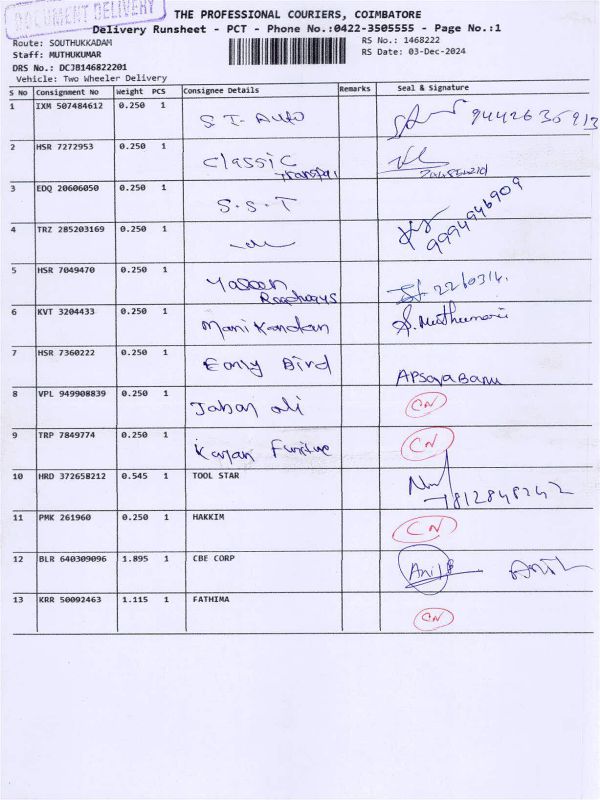 DOCUMENT DELIVERY
THE PROFESSIONAL COURIERS, COIMBATORE
Delivery Runsheet - PCT - Phone No.:0422-3505555 - Page No.:1
Route: SOUTHUKKADAM
RS No.: 1468222
Staff: MUTHUKUMAR
RS Date: 03-Dec-2024
DRS No.: DCJB146822201
Vehicle: Two Wheeler Delivery
S No Consignment No Weight PCS Consignee Details Remarks Seal & Signature
1 IXM 507484612 0.250 1 S T- Auto
2 HSR 7272953 0.250 1 Classic
3 EDQ 20606050 0.250 1 S.S.T 9994946909
4 TRZ 285203169 0.250 1
5 HSR 7049470 0.250 1 Yaseen
Roadways
6 KVT 3204433 0.250 1 Manikandan
7 HSR 7360222 0.250 1 Early Bird
8 VPL 949908839 0.250 1 CN
9 TRP 7849774 0.250 1 CN
10 HRD 372658212 0.545 1 TOOL STAR 7812848242
11 PMK 261960 0.250 1 HAKKIM CN
12 BLR 640309096 1.895 1 CBE CORP
13 KRR 50092463 1.115 1 FATHIMA CN